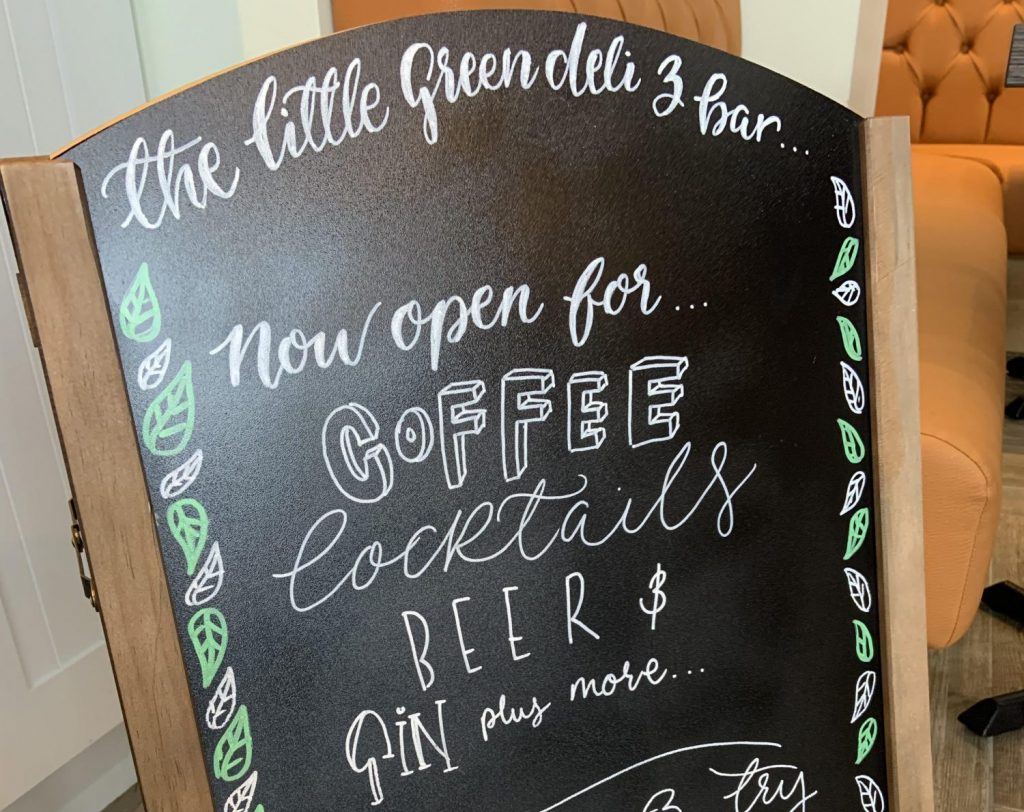 the little Green deli & bar...
Now open for...
COFFEE
Cocktails
BEER &
GIN plus more...
try